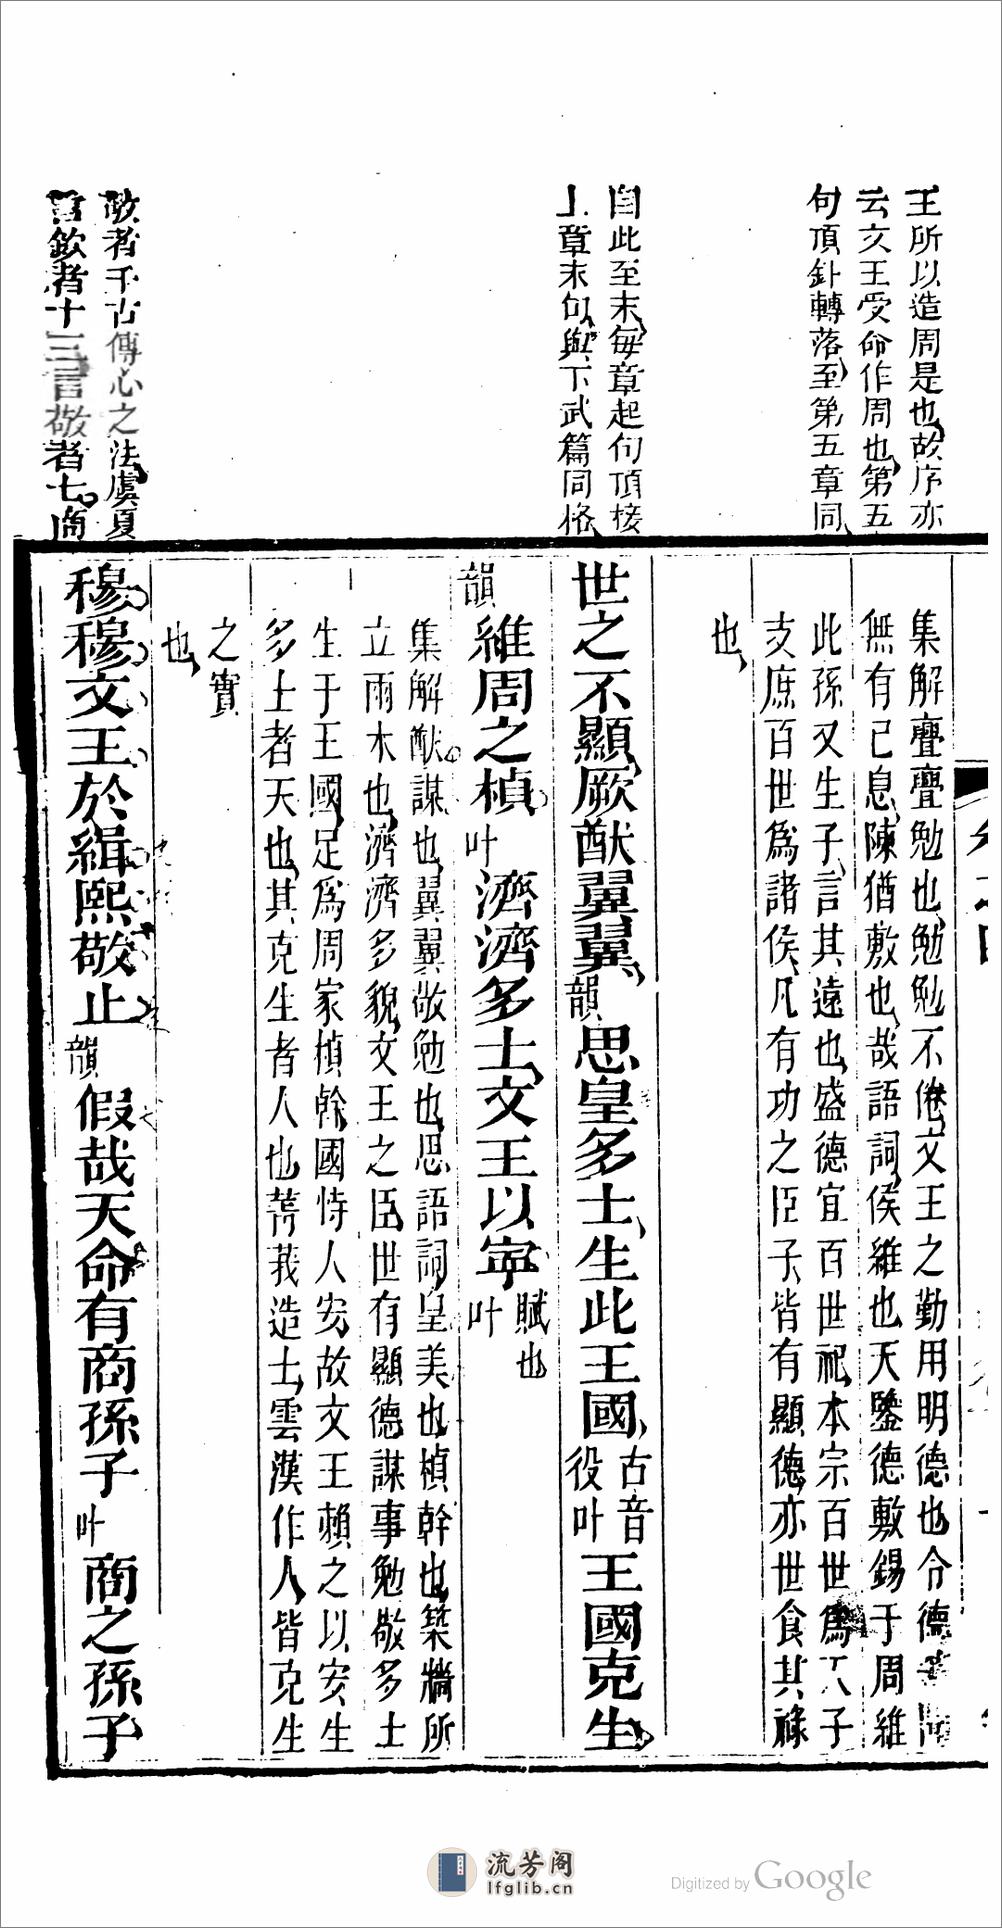 王所以造周是也故序亦
云文王受命作周也第五
句頂針轉落至第五章同
自此至末每章起句頂接
上章末句與下武篇同格
敬者千古傳心之法虞夏
言欽者十三言敬者七商
集解亹亹勉也勉勉不倦文王之勤用明德也令德善聞
無有已息陳猶敷也哉語詞侯維也天鑒德敷錫于周維
此孫又生子言其遠也盛德宜百世祀本宗百世爲天子
支庶百世爲諸侯凡有功之臣子皆有顯德亦世食其祿
也
世之不顯厥猷翼翼韻思皇多士生此王國古音役叶王國克生
韻維周之楨叶濟濟多士文王以寧賦也叶
集解猷謀也翼翼敬勉也思語詞皇美也楨幹也築牆所
立兩木也濟濟多貌文王之臣世有顯德謀事勉敬多士
生于王國足爲周家楨幹國恃人安故文王賴之以安生
多士者天也其克生者人也菁莪造士雲漢作人皆克生
之實
也
穆穆文王於緝熙敬止韻假哉天命有商孫子叶商之孫子
流芳阁
lfglib.cn
Digitized by Google